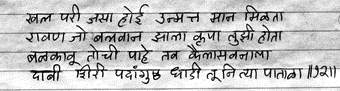 खल परी जसा होई उन्मत्त मान मिळता
रावण जो बलवान झाला कृपा तुझी होता
बळकावू तोची पाहे तव कैलासवनाला
दाबी शिरी पदांगुष्ठ धाडी तू नित्या पाताळा ॥१२॥